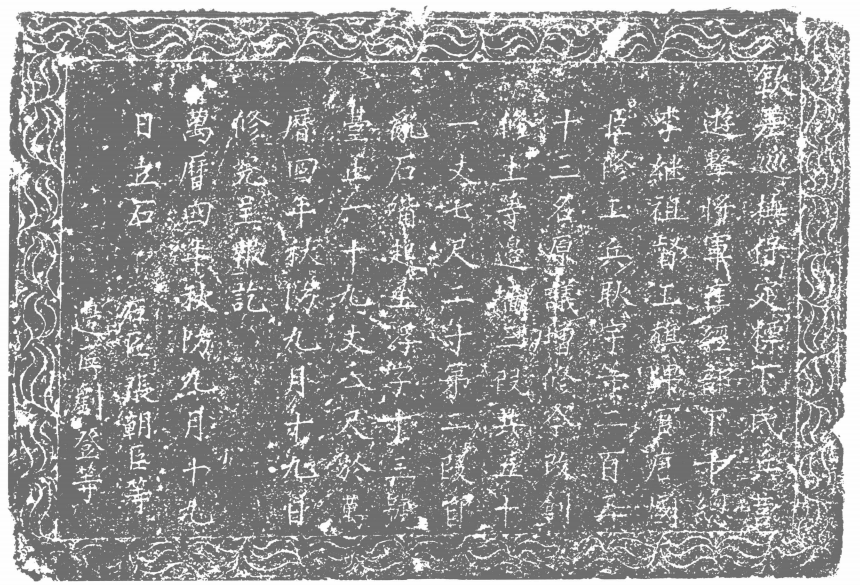 欽差巡撫保定標下民兵營
遊擊將軍 經部下中軍
李繼祖督工旗牌 唐國
臣修工兵耿守 二百
十三名原議增修 改創
修土等邊牆三段共五十
一丈七尺二寸第二段自
亂石 起至浮 十三號
臺止一十九丈八尺於萬
曆四年秋防九月十九日
修完呈報訖
萬曆四年秋防九月十九
日立石
石匠張朝臣等
邊匠劉登等